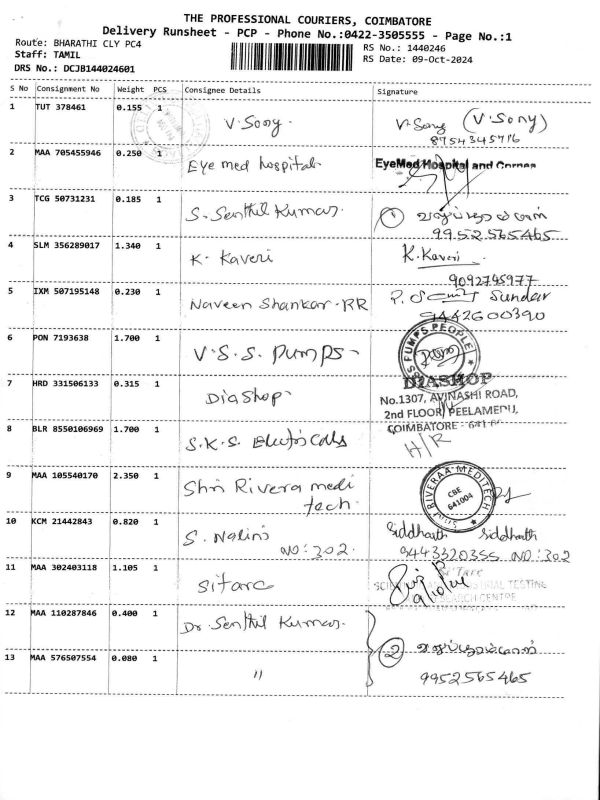 THE PROFESSIONAL COURIERS, COIMBATORE
Delivery Runsheet - PCP - Phone No.:0422-3505555 - Page No.:1
Route: BHARATHI CLY PC4
RS No.: 1440246
Staff: TAMIL
RS Date: 09-Oct-2024
DRS No.: DCJB144024601
S No Consignment No Weight PCS Consignee Details Signature
1 TUT 378461 0.155 1 V. Sony. V. Sony (V. Sony)
8754345716
2 MAA 705455946 0.250 1 Eye med hospital. EyeMed Hospital and Cornea
3 TCG 50731231 0.185 1 S. Senthil Kumar. 1
9952565465
4 SLM 356289017 1.340 1 K. Kaveri K. Kaveri
9092745977
5 IXM 507195148 0.230 1 Naveen Shankar. RR P. Sundar
9442600390
6 PON 7193638 1.700 1 V. S. S. Pumps SS PUMPS PEOPLE
7 HRD 331506133 0.315 1 Diashop DIASHOP
No.1307, AVINASHI ROAD,
2nd FLOOR, PEELAMEDU,
COIMBATORE -
8 BLR 8550106969 1.700 1 S.K.S. Electricals H/R
9 MAA 105540170 2.350 1 Shri Rivera medi
tech. RIVERAA MEDITECH CBE 641004
10 KCM 21442843 0.820 1 S. Nalini Siddharth Siddharth
NO: 302. 9443320355 NO: 302
11 MAA 302403118 1.105 1 Sitarc Si'Tarc
TESTING
RESEARCH CENTRE
9/10/24
12 MAA 110287846 0.400 1 Dr. Senthil Kumar. 2
13 MAA 576507554 0.080 1 " 9952565465